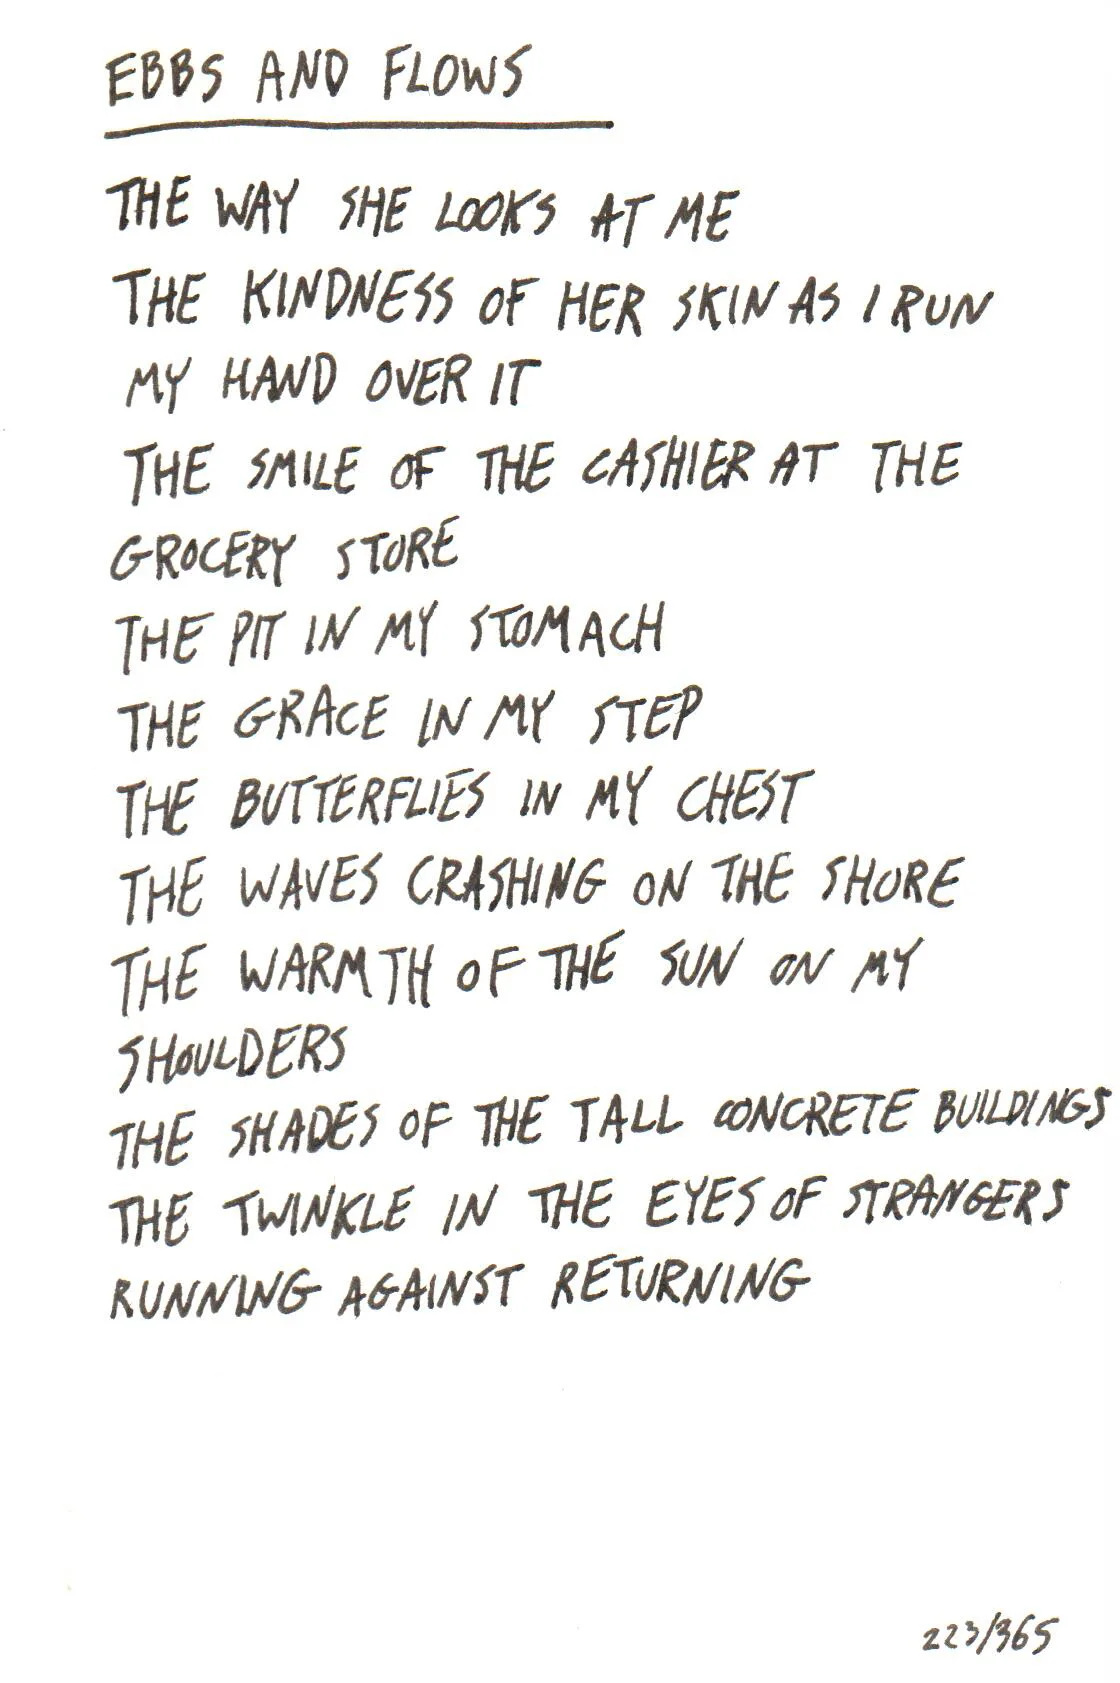 EBBS AND FLOWS
THE WAY SHE LOOKS AT ME
THE KINDNESS OF HER SKIN AS I RUN
MY HAND OVER IT
THE SMILE OF THE CASHIER AT THE
GROCERY STORE
THE PIT IN MY STOMACH
THE GRACE IN MY STEP
THE BUTTERFLIES IN MY CHEST
THE WAVES CRASHING ON THE SHORE
THE WARMTH OF THE SUN ON MY
SHOULDERS
THE SHADES OF THE TALL CONCRETE BUILDINGS
THE TWINKLE IN THE EYES OF STRANGERS
RUNNING AGAINST RETURNING
223/365